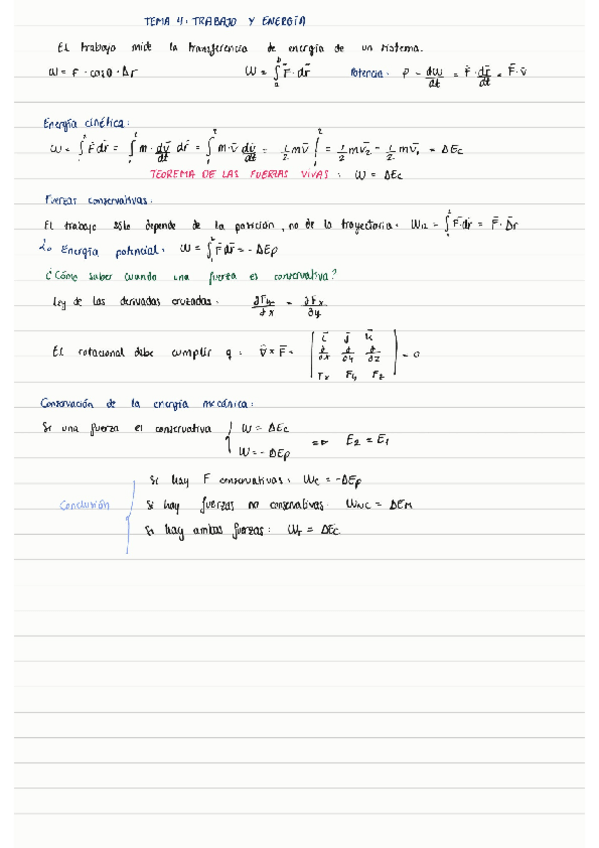 TEMA 4: TRABAJO Y ENERGÍA
El trabajo mide la transferencia de energía de un sistema.
W = F · cosθ · Δr W = ∫ₐᵇ F̄ · dr̄ Potencia: P = dW/dt = F̄ · dr̄/dt = F̄ · v̄
Energía cinética:
W = ∫₁² F̄ dr̄ = ∫₁² m · dv̄/dt dr̄ = ∫₁² m · v̄ dv̄/dt = 1/2 m v̄ |₁² = 1/2 m v̄₂ - 1/2 m v̄₁ = ΔEc
TEOREMA DE LAS FUERZAS VIVAS: W = ΔEc
Fuerzas conservativas:
El trabajo sólo depende de la posición, no de la trayectoria. W₁₂ = ∫₁² F̄·dr̄ = F̄ · Δr̄
↳ Energía potencial: W = ∫₁² F̄ dr̄ = - ΔEp
¿Cómo saber cuando una fuerza es conservativa?
Ley de las derivadas cruzadas: ∂Fy/∂x = ∂Fx/∂y
El rotacional debe cumplir q: ∇̄ × F̄ = | ī j̄ k̄ |
| ∂/∂x ∂/∂y ∂/∂z | = 0
| Fx Fy Fz |
Conservación de la energía mecánica:
Si una fuerza es conservativa { W = ΔEc
W = - ΔEp ⇒ E₂ = E₁
Si hay F conservativas: Wc = -ΔEp
Conclusión Si hay fuerzas no conservativas: Wnc = ΔEM
Si hay ambas fuerzas: WT = ΔEc